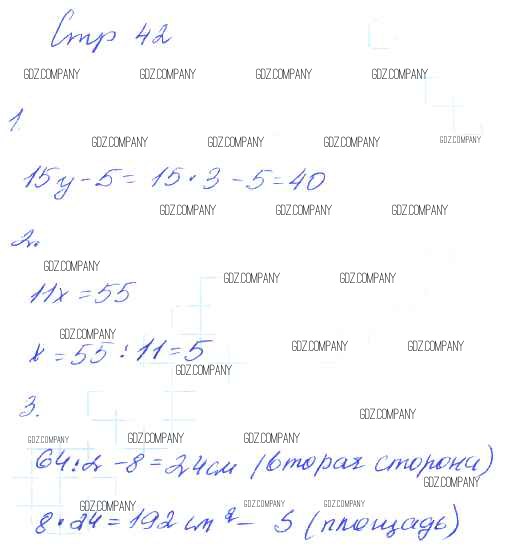 Стр 42
GDZ.COMPANY GDZ.COMPANY GDZ.COMPANY GDZ.COMPANY
1.
GDZ.COMPANY GDZ.COMPANY GDZ.COMPANY GDZ.COMPANY
15y - 5 = 15 · 3 - 5 = 40
GDZ.COMPANY GDZ.COMPANY GDZ.COMPANY
2.
GDZ.COMPANY GDZ.COMPANY GDZ.COMPANY
11x = 55
GDZ.COMPANY GDZ.COMPANY GDZ.COMPANY
x = 55 : 11 = 5
GDZ.COMPANY
3.
GDZ.COMPANY
GDZ.COMPANY GDZ.COMPANY GDZ.COMPANY
64:2 - 8 = 24 см (вторая сторона)
GDZ.COMPANY
GDZ.COMPANY GDZ.COMPANY GDZ.COMPANY
8 · 24 = 192 см² - S (площадь)